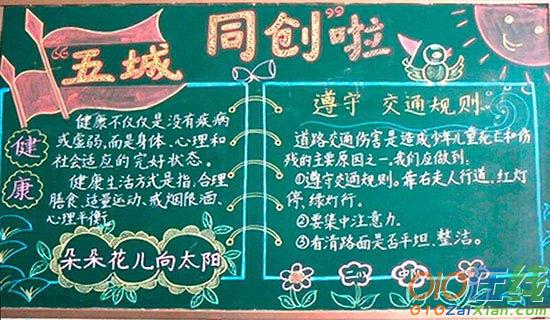 “五城同创”啦
健康
健康不仅仅是没有疾病
或虚弱,而是身体、心理和
社会适应的完好状态。
健康生活方式是指,合理
膳食、适量运动、戒烟限酒、
心理平衡。
朵朵花儿向太阳
遵守 交通规则。
道路交通伤害是造成少年儿童死亡和伤
残的主要原因之一。我们应做到:
①遵守交通规则。靠右走人行道,红灯
停,绿灯行。
②要集中注意力。
③看清路面是否平坦、整洁。
二(1)中队
010在线
010zaixian.com